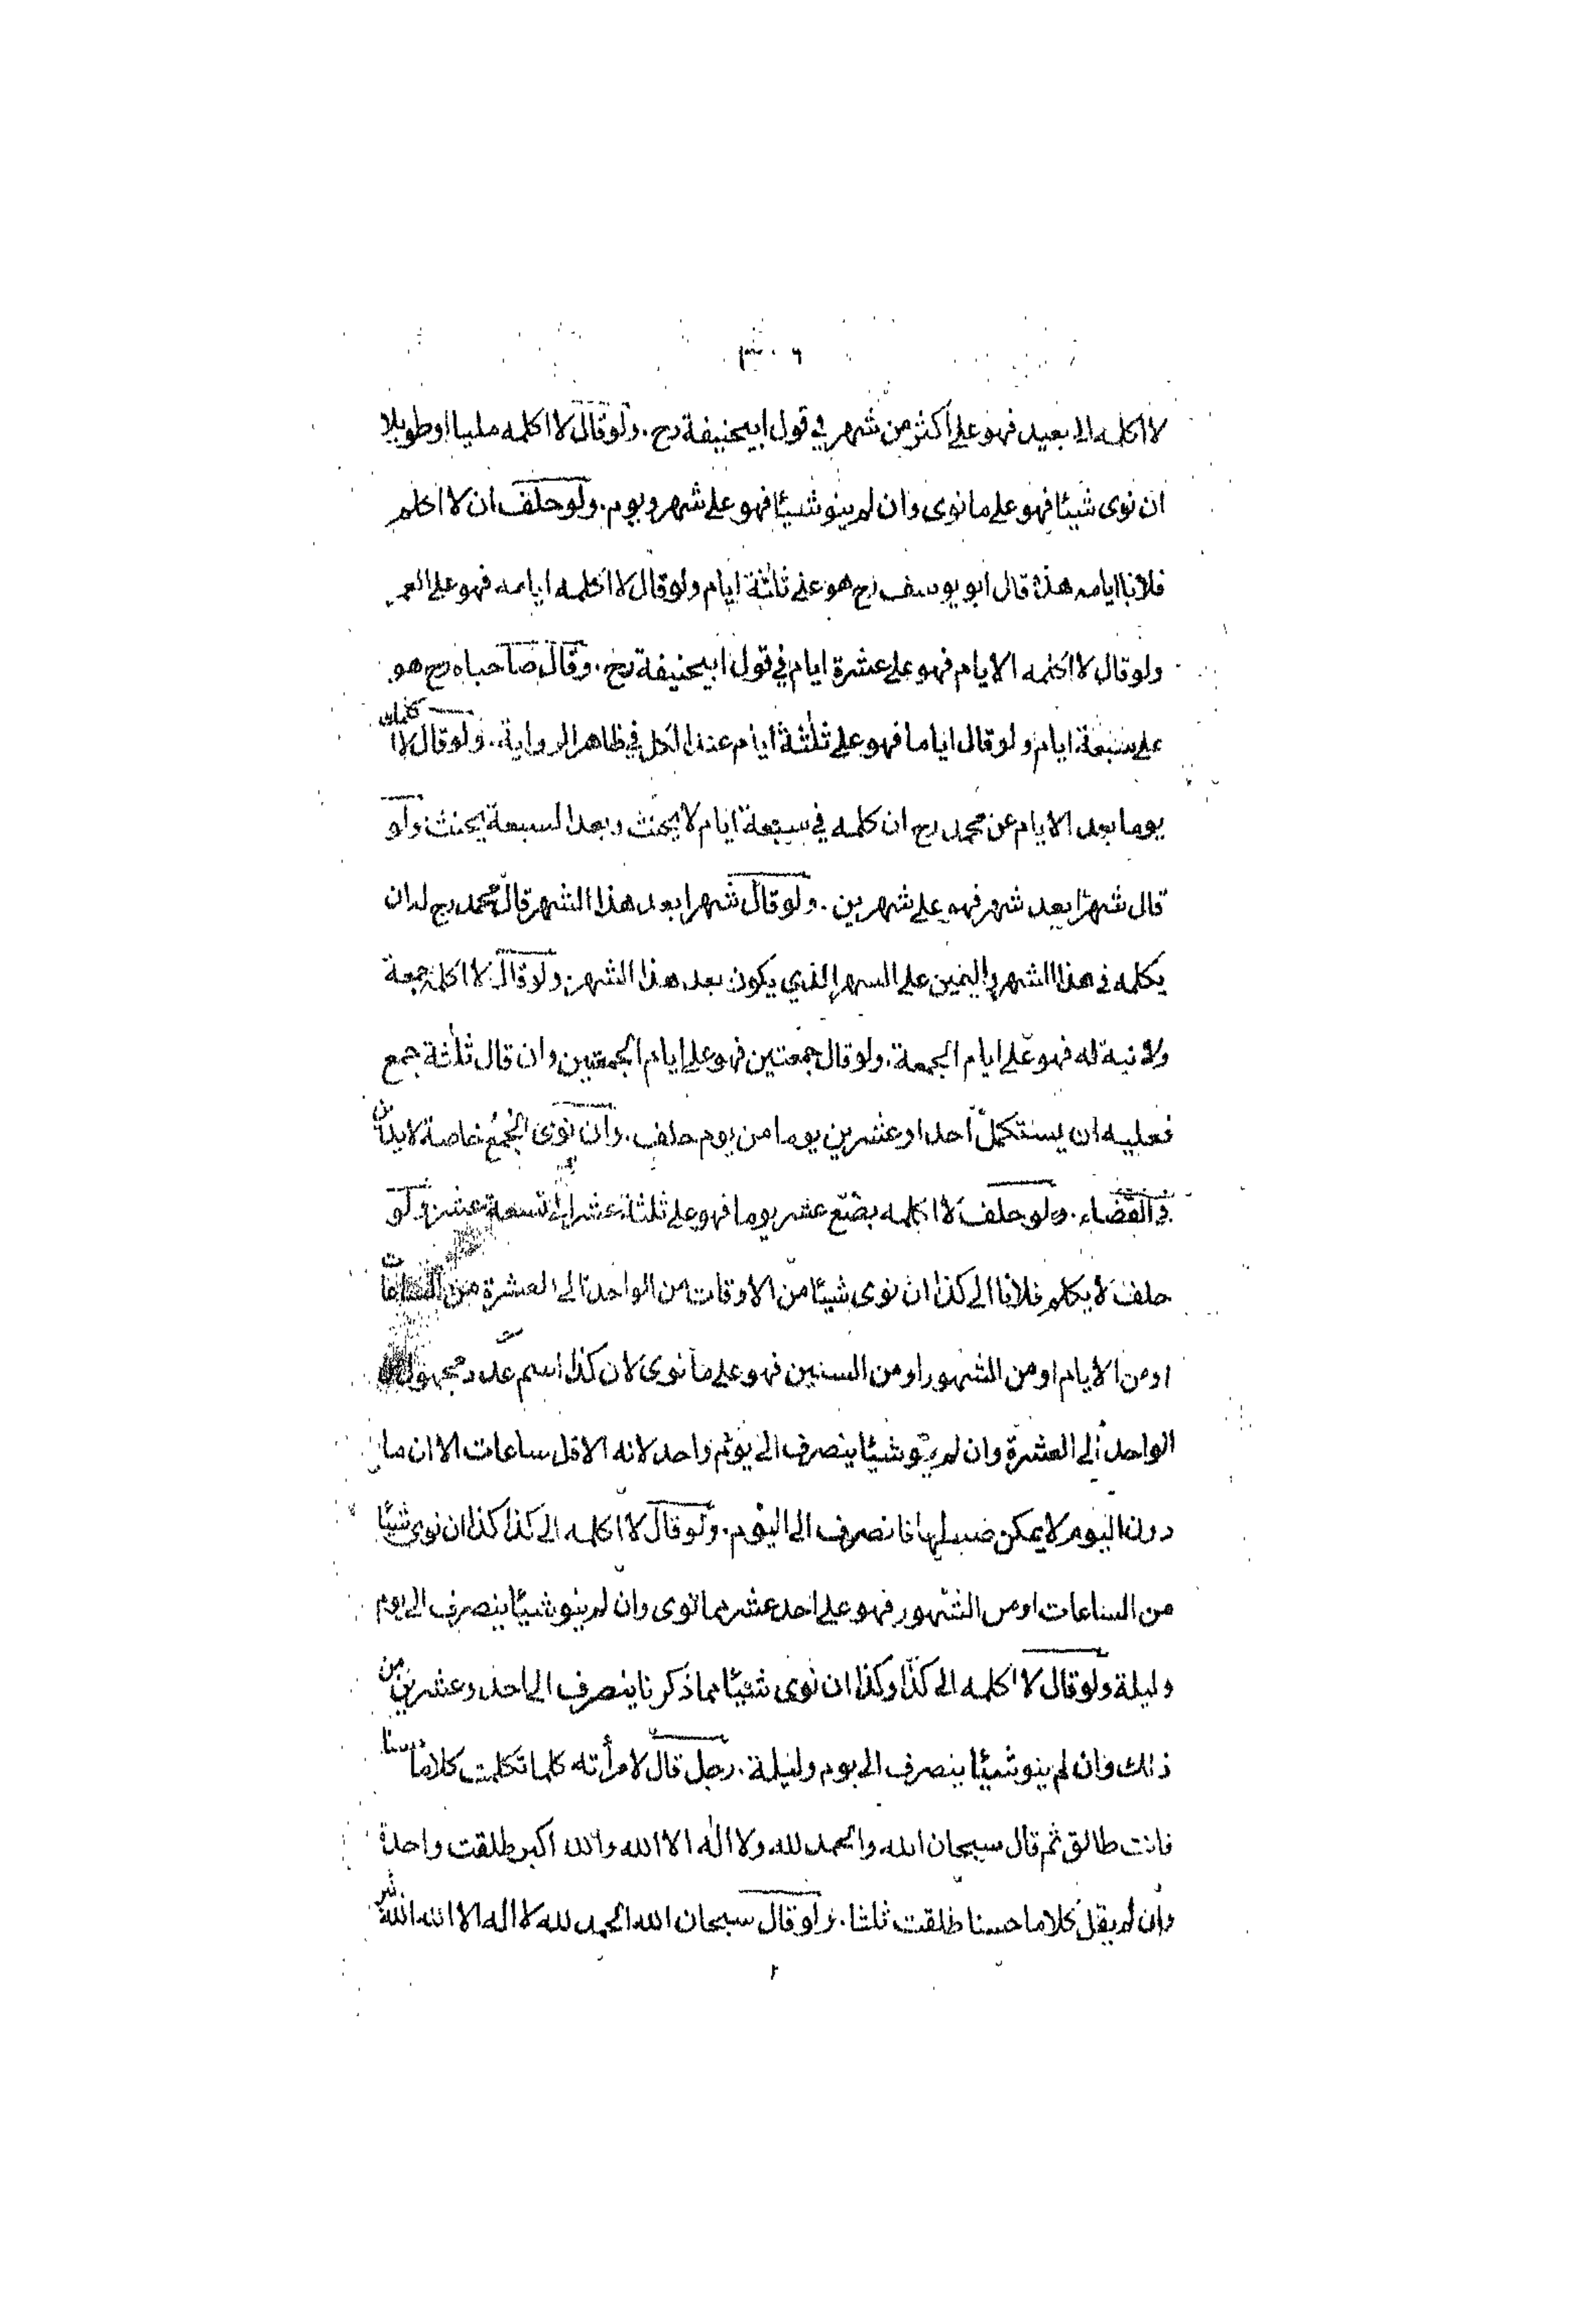 ٣٠٦
لا اكلمه الى بعيد فهو على أكثر من شهر في قول ابيحنيفة رح . ولو قال لا اكلمه مليا او طويلا
ان نوى شيئا فهو على ما نوى وان لم ينو شيئا فهو على شهر ويوم . ولو حلف ان لا اكلم
فلانا ايامه هذه قال ابو يوسف رح هو على ثلثة ايام ولو قال لا اكلمه ايامه فهو على العمر
ولو قال لا اكلمه الايام فهو على عشرة ايام في قول ابيحنيفة رح . وقال صاحباه رح هو
على سبعة ايام ولو قال اياما فهو على ثلثة ايام عند الكل في ظاهر الرواية . ولو قال لا اكلمك
يوما بعد الايام عن محمد رح ان كلمه في سبعة ايام لا يحنث وبعد السبعة يحنث . ولو
قال شهرا بعد شهر فهو على شهرين . ولو قال شهرا بعد هذا الشهر قال محمد رح له ان
يكلمه في هذا الشهر واليمين على الشهر الذي يكون بعد هذا الشهر . ولو قال لا اكلمه جمعة
ولا نية له فهو على ايام الجمعة . ولو قال جمعتين فهو على ايام الجمعتين وان قال ثلثة جمع
فعليه ان يستكمل أحدا وعشرين يوما من يوم حلف . وان نوى الجمع خاصة لا يدين
في القضاء . ولو حلف لا اكلمه بضع عشر يوما فهو على ثلثة عشر الى تسعة عشر . ولو
حلف لا يكلم فلانا الى كذا ان نوى شيئا من الاوقات من الواحد الى العشرة من الساعات
او من الايام او من الشهور او من السنين فهو على ما نوى لان كذا اسم عدد مجهول
الواحد الى العشرة وان لم ينو شيئا ينصرف الى يوم واحد لانه الاقل ساعات الا ان ما
دون اليوم لا يمكن ضبطها فانصرف الى اليوم . ولو قال لا اكلمه الى كذا كذا ان نوى شيئا
من الساعات او من الشهور فهو على احد عشر مما نوى وان لم ينو شيئا ينصرف الى يوم
وليلة ولو قال لا اكلمه الى كذا وكذا ان نوى شيئا مما ذكرنا ينصرف الى احد وعشرين من
ذلك وان لم ينو شيئا ينصرف الى يوم وليلة . رجل قال لامرأته كلما تكلمت كلاما حسنا
فانت طالق ثم قال سبحان الله والحمد لله ولا اله الا الله والله اكبر طلقت واحدة
وان لم يقل كلاما حسنا طلقت ثلثا . ولو قال سبحان الله الحمد لله لا اله الا الله الله